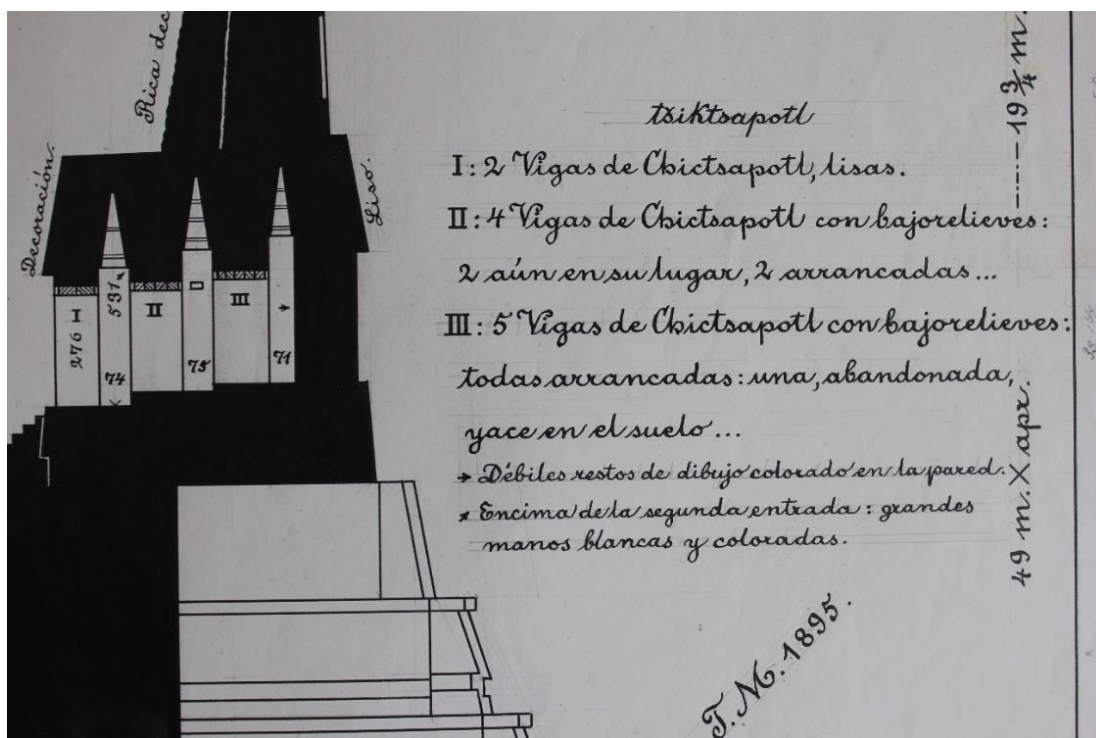 Rica dec
Decoración.
Liso.
I
276
531
74
II
75
III
71
tsiktsapotl
I: 2 Vigas de Chictsapotl, lisas.
II: 4 Vigas de Chictsapotl con bajorelieves:
2 aún en su lugar, 2 arrancadas...
III: 5 Vigas de Chictsapotl con bajorelieves:
todas arrancadas: una, abandonada,
yace en el suelo...
→ Débiles restos de dibujo colorado en la pared.
× Encima de la segunda entrada: grandes
manos blancas y coloradas.
19 3/4 m.
49 m. X apr.
T. M. 1895.